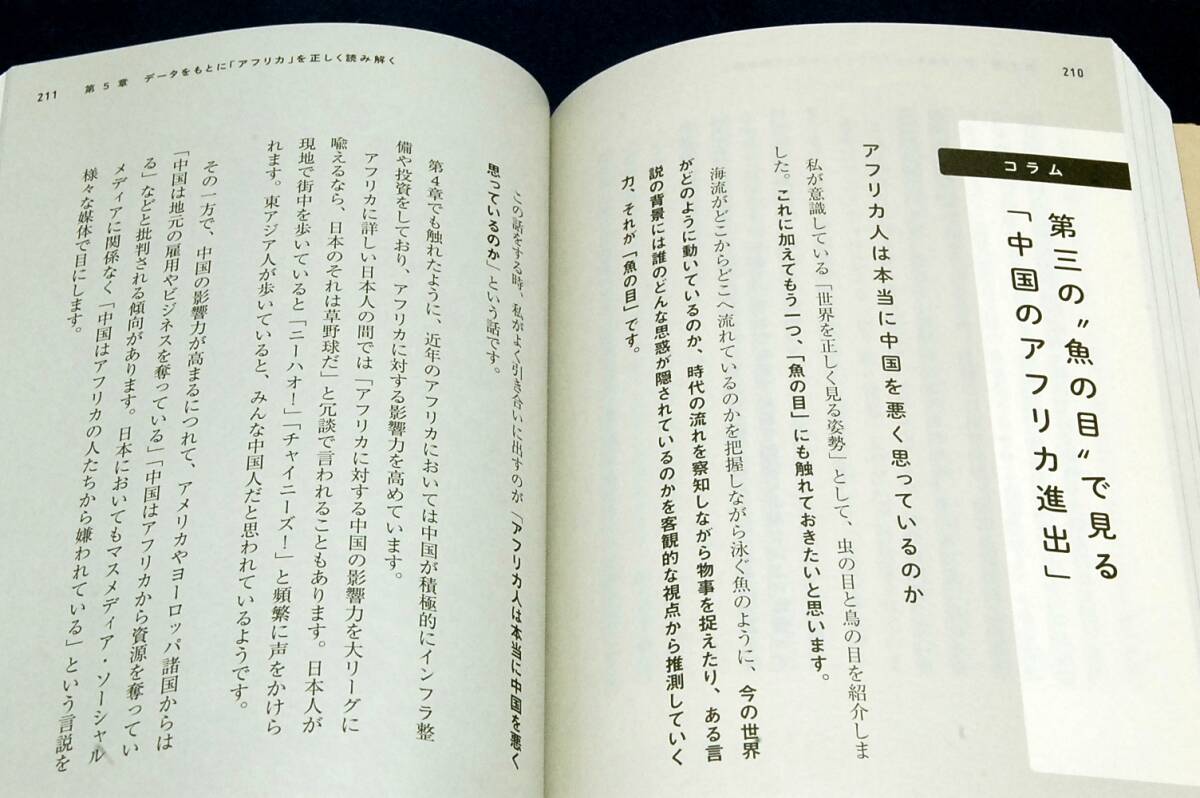 210
コラム
第三の〝魚の目〟で見る
「中国のアフリカ進出」
アフリカ人は本当に中国を悪く思っているのか
私が意識している「世界を正しく見る姿勢」として、虫の目と鳥の目を紹介しま
した。これに加えてもう一つ、「魚の目」にも触れておきたいと思います。
海流がどこからどこへ流れているのかを把握しながら泳ぐ魚のように、今の世界
がどのように動いているのか、時代の流れを察知しながら物事を捉えたり、ある言
説の背景には誰のどんな思惑が隠されているのかを客観的な視点から推測していく
力、それが「魚の目」です。
211
第5章 データをもとに「アフリカ」を正しく読み解く
この話をする時、私がよく引き合いに出すのが「アフリカ人は本当に中国を悪く
思っているのか」という話です。
第4章でも触れたように、近年のアフリカにおいては中国が積極的にインフラ整
備や投資をしており、アフリカに対する影響力を高めています。
アフリカに詳しい日本人の間では「アフリカに対する中国の影響力を大リーグに
喩えるなら、日本のそれは草野球だ」と冗談で言われることもあります。日本人が
現地で街中を歩いていると「ニーハオ!」「チャイニーズ!」と頻繁に声をかけら
れます。東アジア人が歩いていると、みんな中国人だと思われているようです。
その一方で、中国の影響力が高まるにつれて、アメリカやヨーロッパ諸国からは
「中国は地元の雇用やビジネスを奪っている」「中国はアフリカから資源を奪ってい
る」などと批判される傾向があります。日本においてもマスメディア・ソーシャル
メディアに関係なく「中国はアフリカの人たちから嫌われている」という言説を
様々な媒体で目にします。